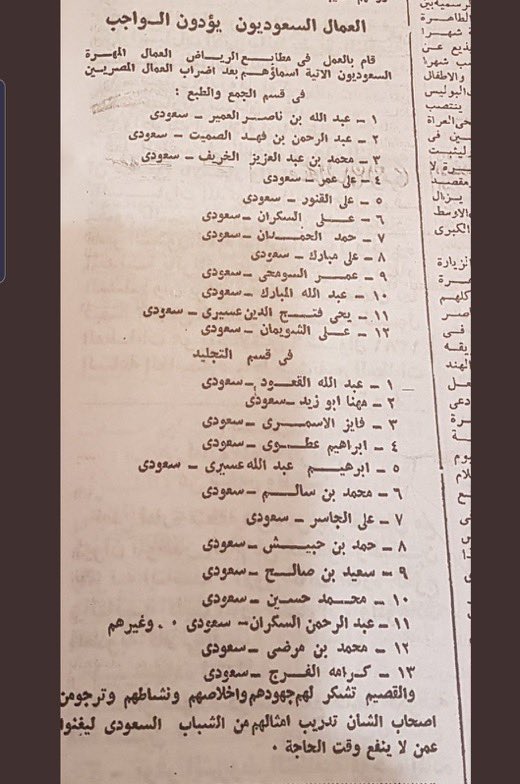 العمال السعوديون يؤدون الـواجب
قام بالعمل فى مطابع الرياض العمال المهرة
السعوديون الاتية اسماؤهم بعد اضراب العمال المصريين
فى قسم الجمع والطبع :
١ – عبد الله بن ناصر العمير – سعودى
٢ – عبد الرحمن بن فهد الصميت – سعودى
٣ – محمد بن عبد العزيز الخريف – سعودى
٤ – على عمر – سعودى
٥ – على القنور – سعودى
٦ – على السكران – سعودى
٧ – حمد الحمدان – سعودى
٨ – على مبارك – سعودى
٩ – عمر السومحى – سعودى
١٠ – عبد الله المبارك – سعودى
١١ – يحى فتح الدين عسيرى – سعودى
١٢ – على الشويمان – سعودى
فى قسم التجليد
١ – عبد الله القعود – سعودى
٢ – مهنا ابو زيد – سعودى
٣ – فايز الاسمرى – سعودى
٤ – ابراهيم عطوى – سعودى
٥ – ابرهيم عبد الله عسيرى – سعودى
٦ – محمد بن سالم – سعودى
٧ – على الجاسر – سعودى
٨ – حمد بن حبيش – سعودى
٩ – سعيد بن صالح – سعودى
١٠ – محمد حسين – سعودى
١١ – عبد الرحمن السكران – سعودى ٠ . وغيرهم
١٢ – محمد بن مرضى – سعودى
١٣ – كرامه الفرج – سعودى
والقصيم تشكر لهم جهودهم واخلاصهم ونشاطهم وترجو من
اصحاب الشان تدريب امثالهم من الشباب السعودى ليغنوا
عمن لا ينفع وقت الحاجة ٠